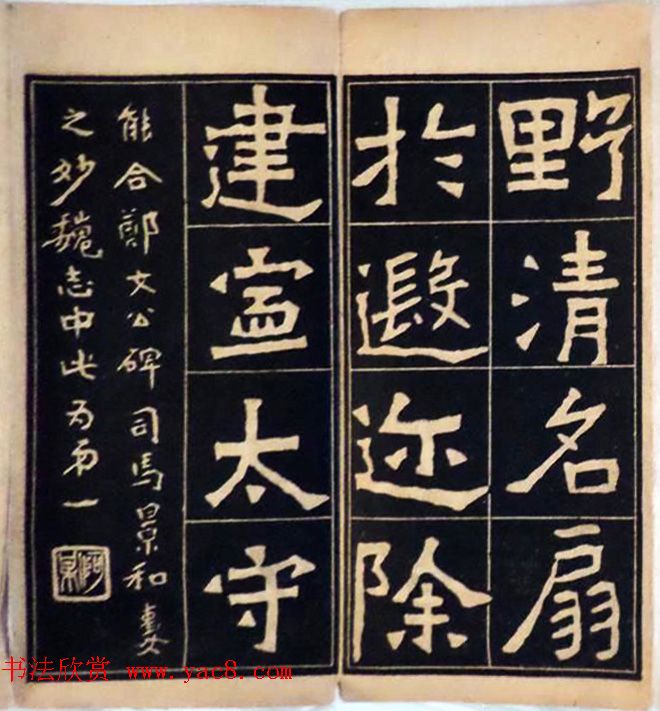 野清名扇
於遐迩除
建寧太守
能合鄭文公碑司馬景和妻
之妙魏志中此为第一
书法欣赏 www.yac8.com